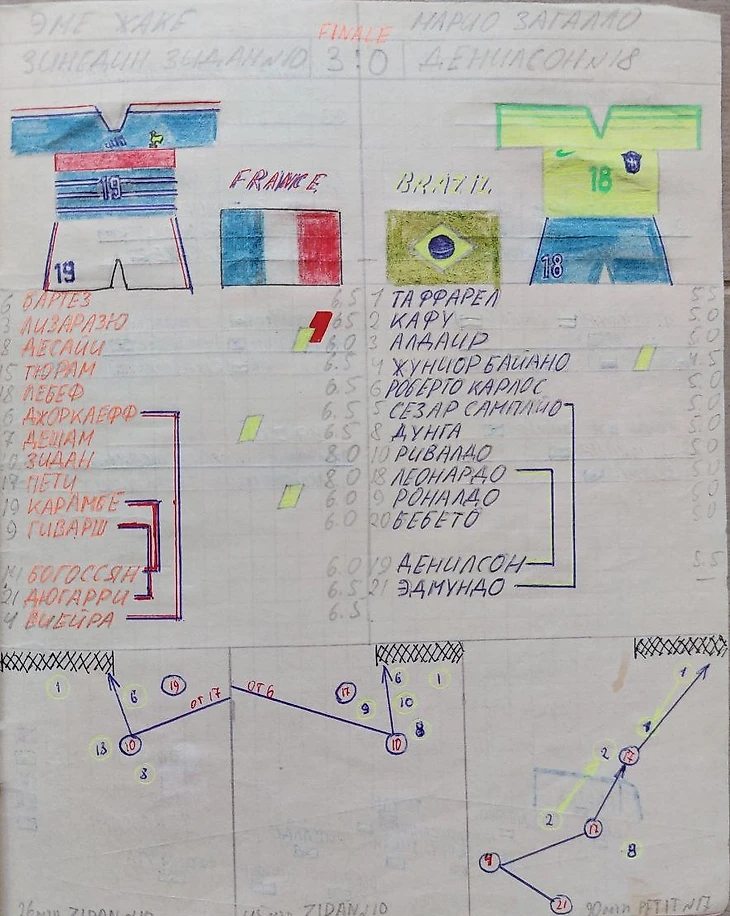 ЭМЕ ЖАКЕ FINALE МАРИО ЗАГАЛЛО
ЗИНЕДИН ЗИДАН N10 3:0 ДЕНИЛСОН N18
19
18
FRANCE
BRAZIL
19
18
БАРТЕЗ 6.5
3 ЛИЗАРАЗЮ 6.5
8 ДЕСАИИ 6.0
15 ТЮРАМ 6.5
18 ЛЕБЕФ
6 ДЖОРКАЕФФ 6.5
7 ДЕШАМ 6.5
ЗИДАН 8.0
ПЕТИ 8.0
19 КАРАМБЕ 6.0
9 ГИВАРШ 6.0
14 БОГОССЯН 6.0
21 ДЮГАРРИ 6.5
4 ВИЕЙРА 6.5
1 ТАФФАРЕЛ 5.5
2 КАФУ 5.0
3 АЛДАИР 5.0
4 ЖУНИОР БАЙАНО 4.5
6 РОБЕРТО КАРЛОС 5.0
5 СЕЗАР САМПАЙО 5.0
8 ДУНГА 5.0
10 РИВАЛДО 5.0
18 ЛЕОНАРДО 5.0
9 РОНАЛДО 5.0
20 БЕБЕТО 5.0
19 ДЕНИЛСОН 5.5
21 ЭДМУНДО –
1 6 19 ОТ 17
18 10
8
ОТ 6 17 6 1
9 10
10 8
1
4
2 17
2 17
4 8
21
26 МИН ZIDAN N10
45 МИН ZIDAN N10
90 МИН PETIT N17